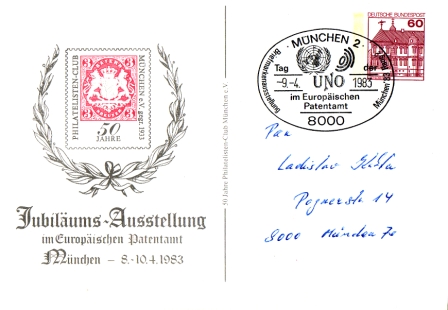 PHILATELISTEN-CLUB
MÜNCHEN e.V. gegr. 1933
3 3
3 3
50
JAHRE
Jubiläums-Ausstellung
im Europäischen Patentamt
München – 8.-10.4.1983
50 Jahre Philatelisten-Club München e.V.
· MÜNCHEN 2 ·
Briefmarkenausstellung
Tag der
-9.-4. UNO 1983
im Europäischen
Patentamt
8000
München 83
DEUTSCHE BUNDESPOST
60
Pan
Ladislav
Pognerstr 14
8000 München 70